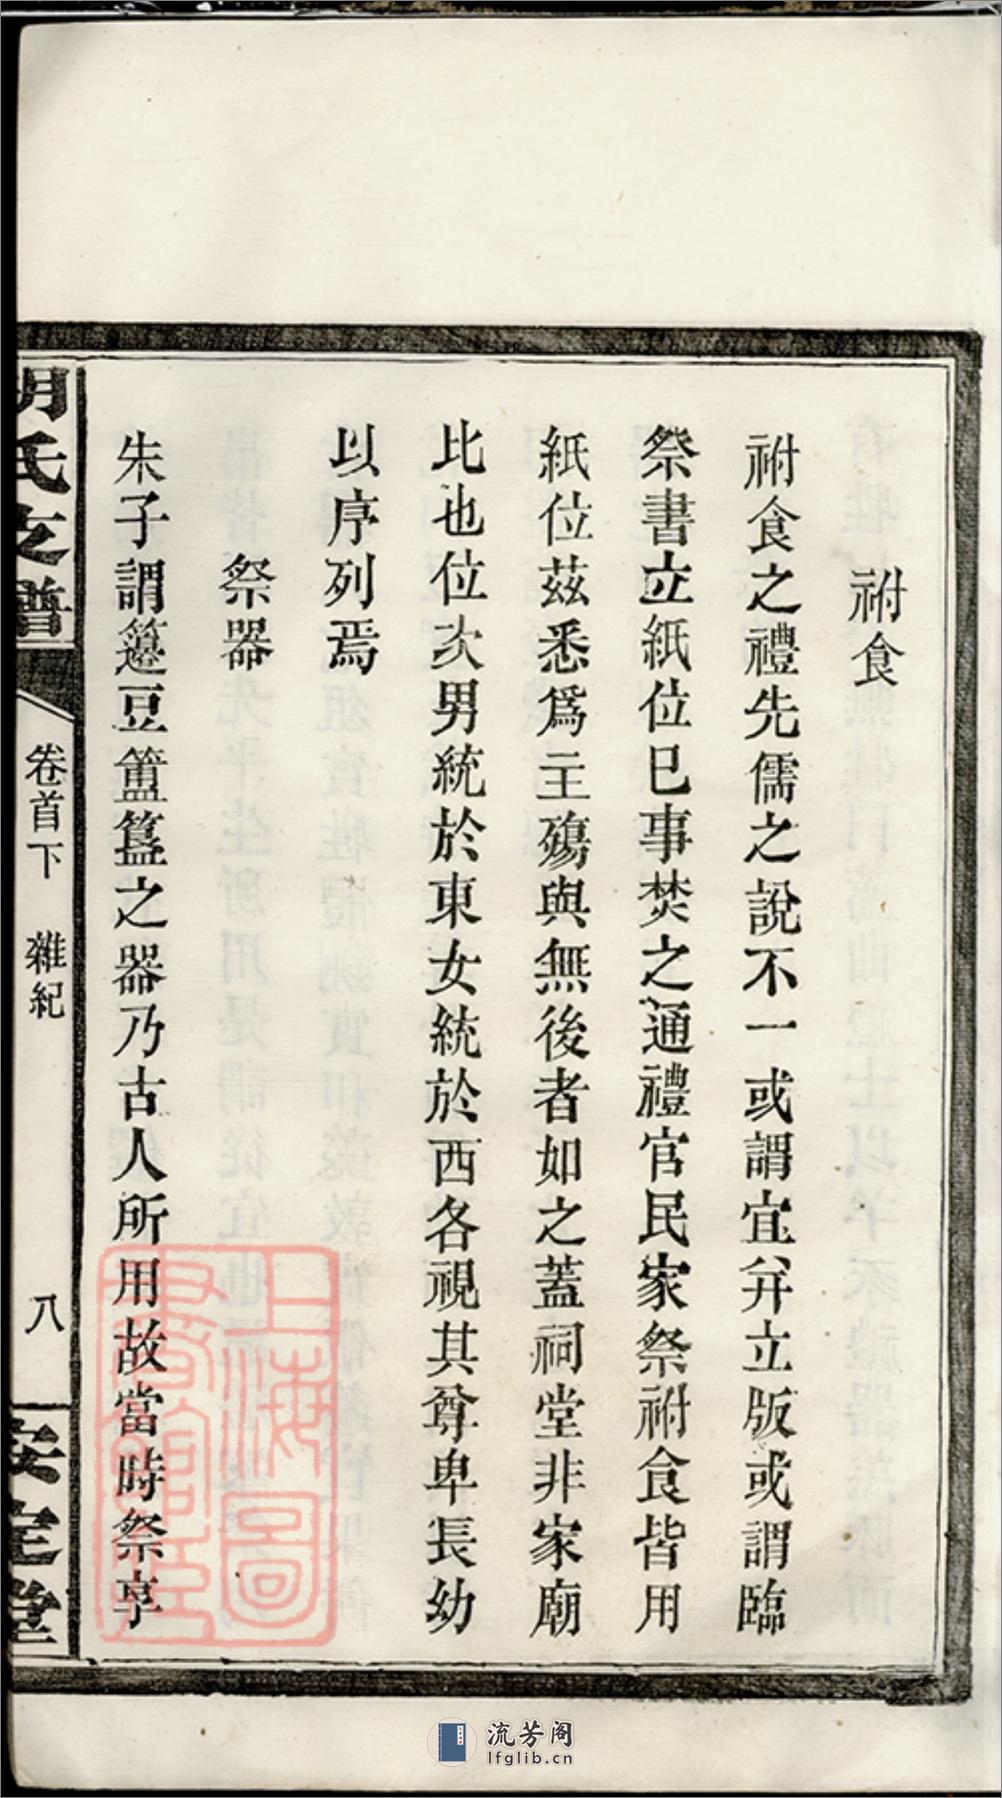 祔食
祔食之禮先儒之說不一或謂宜弁立版或謂臨
祭書立紙位巳事焚之通禮官民家祭祔食皆用
紙位茲悉爲主殤與無後者如之蓋祠堂非家廟
比也位次男統於東女統於西各視其尊卑長幼
以序列焉
祭器
朱子謂籩豆簠簋之器乃古人所用故當時祭享
胡氏支譜
卷首下 雜紀
八
安定堂
上海圖
書館藏
流芳阁
lfglib.cn